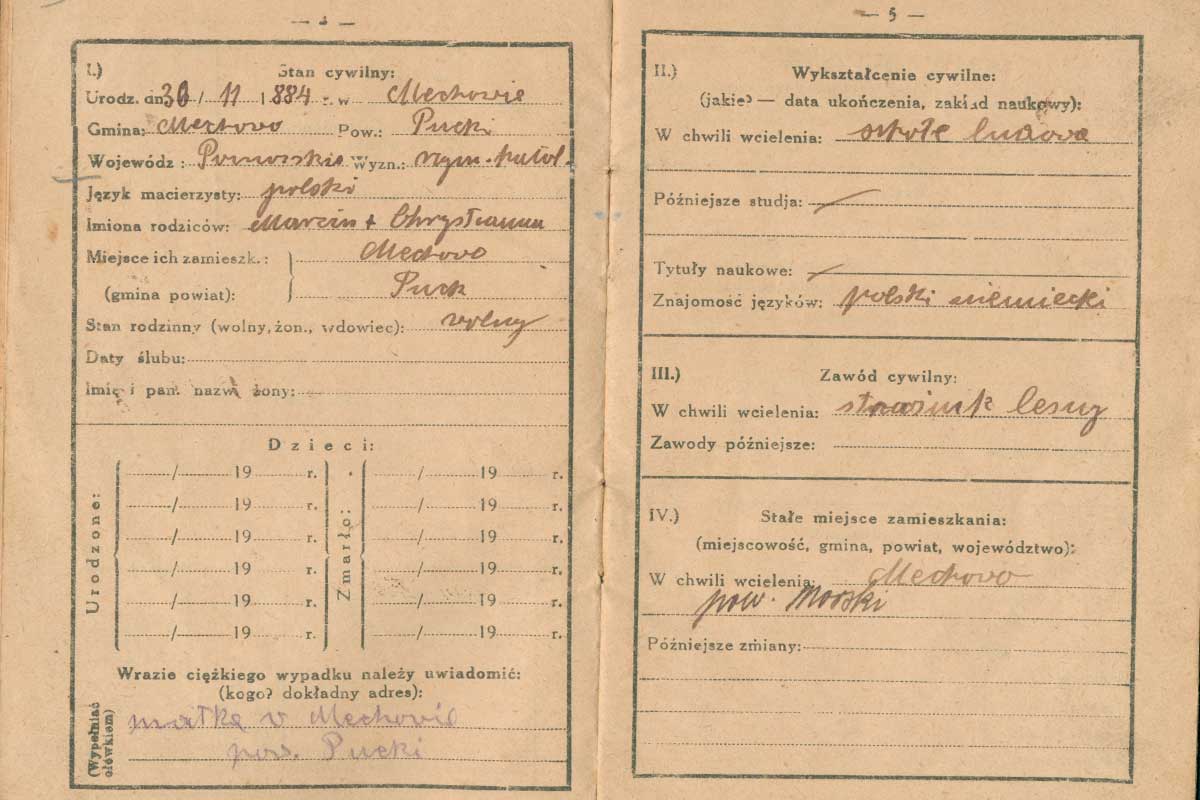 I.) Stan cywilny:
Urodz. dn. 30 / 11 1884 r. w Mechowie
Gmina: Mechowo Pow.: Pucki
Wojewódz: Pomorskie Wyzn.: rzym.-katol.
Język macierzysty: polski
Imiona rodziców: Marcin + Chrystianna
Miejsce ich zamieszk.: Mechowo
(gmina powiat): Puck
Stan rodzinny (wolny, żon., wdowiec): wolny
Daty ślubu:
Imię i pan. nazw. żony:
Dzieci:
Urodzone:
/ 19 r.
/ 19 r.
/ 19 r.
/ 19 r.
/ 19 r.
/ 19 r.
Zmarło:
/ 19 r.
/ 19 r.
/ 19 r.
/ 19 r.
/ 19 r.
/ 19 r.
Wrazie ciężkiego wypadku należy uwiadomić:
(kogo? dokładny adres):
(Wypełniać
ołówkiem)
matkę w Mechowie
pow. Pucki
— 5 —
II.) Wykształcenie cywilne:
(jakie? — data ukończenia, zakład naukowy):
W chwili wcielenia: szkołe ludowa
Późniejsze studja: /
Tytuły naukowe: /
Znajomość języków: polski niemiecki
III.) Zawód cywilny:
W chwili wcielenia: strażnik lesny
Zawody późniejsze:
IV.) Stałe miejsce zamieszkania:
(miejscowość, gmina, powiat, województwo):
W chwili wcielenia: Mechowo
pow. Morski
Późniejsze zmiany: